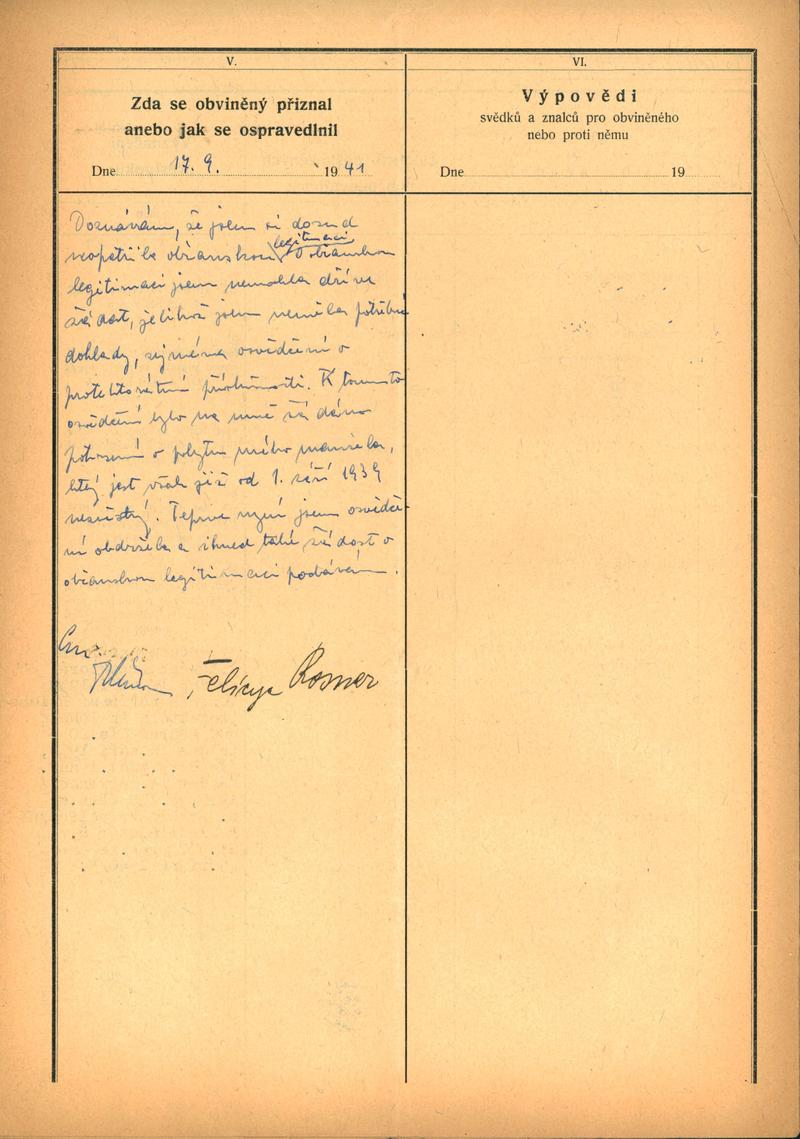 V.
Zda se obviněný přiznal
anebo jak se ospravedlnil
Dne 17. 9. 1941
VI.
Výpovědi
svědků a znalců pro obviněného
nebo proti němu
Dne 19
Doznávám, že jsem si dosud
legitimaci
neopatřila občanskou. O občanskou
legitimaci jsem nemohla dříve
žádat, jelikož jsem neměla potřebné
doklady, zejména osvědčení o
protektorátní příslušnosti. K tomuto
osvědčení bylo na mně žádáno
potvrzení o pobytu mého manžela,
který jest však již od 1. září 1939
nezvěstný. Teprve nyní jsem osvědče-
ní obdržela a ihned také žádost o
občanskou legitimaci podávám.
Felicya Rosner